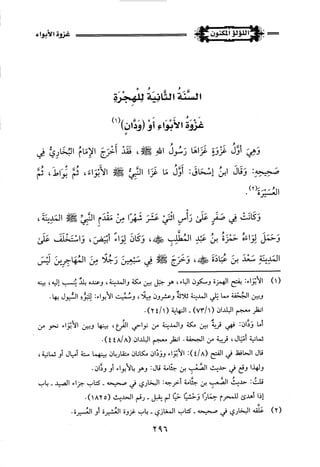 غزوة الأبواء
اللؤلؤ المكنون
السَّنَةُ الثَّانِيَةُ لِلْهِجْرَةِ
غَزْوَةُ الأَبْوَاءِ أَوْ (وَدَّانَ)(١)
وَهِيَ أَوَّلُ غَزْوَةٍ غَزَاهَا رَسُولُ اللهِ ﷺ، فَقَدْ أَخْرَجَ الإِمَامُ البُخَارِيُّ فِي
صَحِيحِهِ: وَقَالَ ابْنُ إِسْحَاقَ: أَوَّلُ مَا غَزَا النَّبِيُّ ﷺ الأَبْوَاءَ، ثُمَّ بُوَاطَ، ثُمَّ
العُشَيْرَةَ(٢).
وَكَانَتْ فِي صَفَرٍ عَلَى رَأْسِ اثْنَيْ عَشَرَ شَهْرًا مِنْ مَقْدَمِ النَّبِيِّ ﷺ المَدِينَةَ،
وَحَمَلَ لِوَاءَهُ حَمْزَةُ بْنُ عَبْدِ المُطَّلِبِ، وَكَانَ لِوَاءً أَبْيَضَ، وَاسْتَخْلَفَ عَلَى
المَدِينَةِ سَعْدَ بْنَ عُبَادَةَ، وَخَرَجَ ﷺ فِي سَبْعِينَ رَجُلًا مِنَ المُهَاجِرِينَ لَيْسَ
(١) الأبْوَاء: بفتح الهمزة وسكون الباء، هو جبل بين مكة والمدينة، وعنده بلد يُنسب إليه، بينه
وبين الجحفة مما يلي المدينة ثلاثة وعشرون ميلًا، وسُميت الأبواء: لِتَبَوُّءِ السُّيول بها.
انظر معجم البلدان (٧٣/١) - النهاية (٢٤/١).
أما وَدَّان: فهي قرية بين مكة والمدينة من نواحي الفُرع، بينها وبين الأبواء نحو من
ثمانية أميال، قريبة من الجحفة. انظر معجم البلدان (٤٤٨/٨).
قال الحافظ في الفتح (٤/٨): الأبْوَاء وَوَدَّان مكانان متقاربان بينهما ستة أميال أو ثمانية،
ولهذا وقع في حديث الصَّعْبِ بن جَثَّامة قال: وهو بالأبواء أو ودان.
قلتُ: حديث الصعب بن جَثَّامة أخرجه: البخاري في صحيحه - كتاب جزاء الصيد - باب
إذا أهدى للمحرم حمارًا وحشيًا حيًا لم يقبل - رقم الحديث (١٨٢٥).
(٢) علقه البخاري في صحيحه - كتاب المغازي - باب غزوة العشيرة أو العسيرة.
٢٩٦